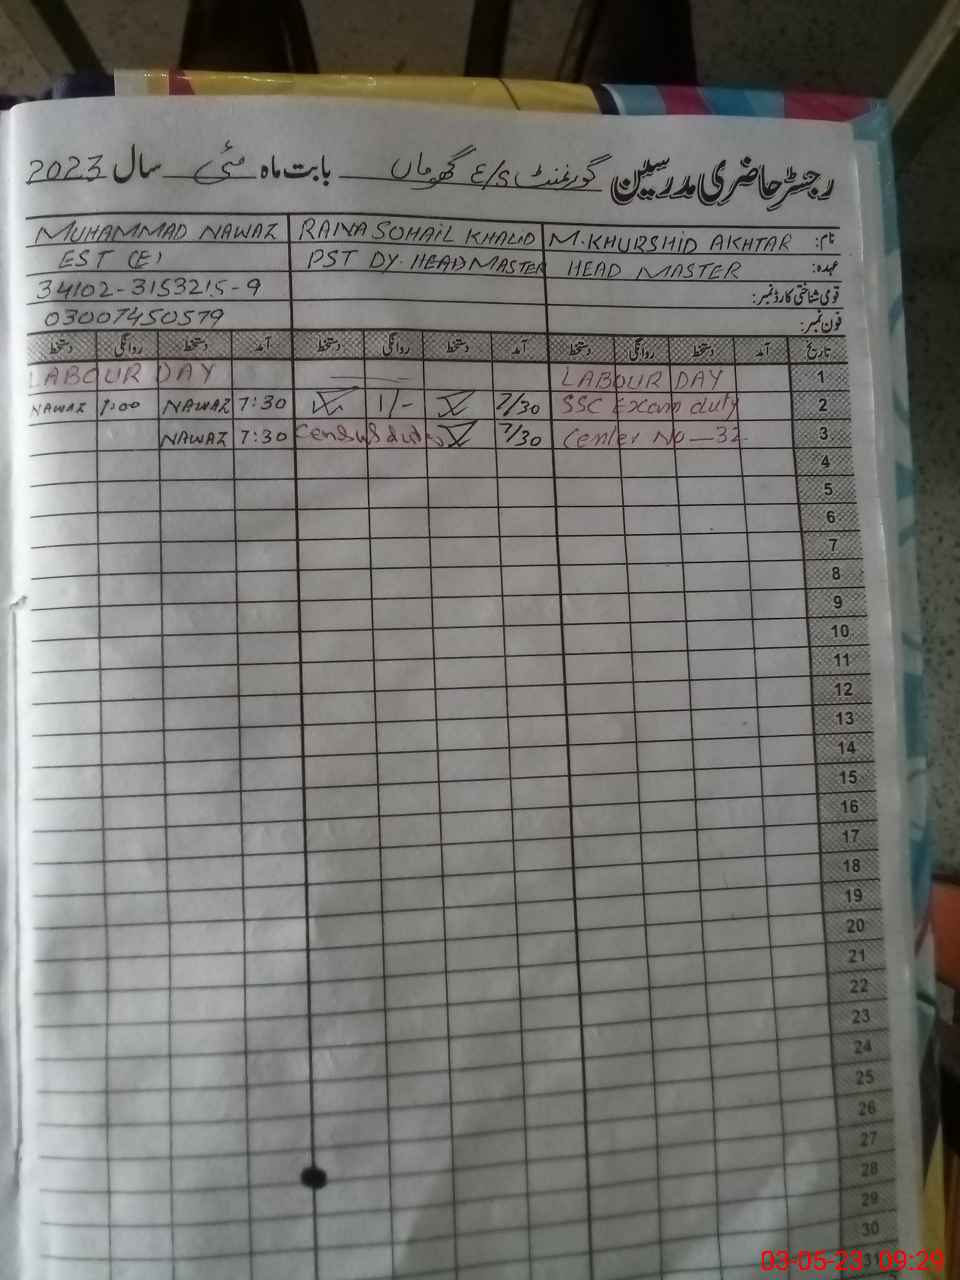 رجسٹر حاضری مدرسین گورنمنٹ E/S گھوماں بابت ماہ مئی سال 2023
نام: M. KHURSHID AKHTAR RAINA SOHAIL KHALID MUHAMMAD NAWAZ
عہدہ: HEAD MASTER PST DY. HEADMASTER EST (E)
قومی شناختی کارڈ نمبر: 34102-3153215-9
فون نمبر: 03007450579
تاریخ آمد دستخط روانگی دستخط آمد دستخط روانگی دستخط آمد دستخط روانگی دستخط
1 LABOUR DAY LABOUR DAY
2 SSC Exam duty 7/30 1/- 7:30 NAWAZ 1:00 NAWAZ
3 Center No - 32 7/30 Census duty 7:30 NAWAZ
4
5
6
7
8
9
10
11
12
13
14
15
16
17
18
19
20
21
22
23
24
25
26
27
28
29
30
31
03-05-23 09:29